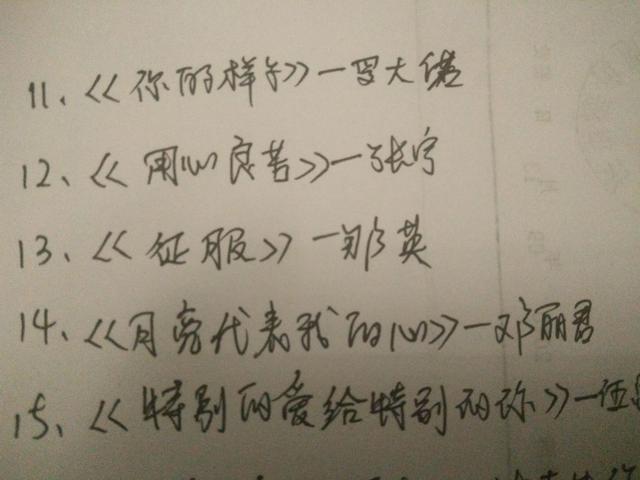 11、《你的样子》—罗大佑
12、《用心良苦》—张宇
13、《征服》—那英
14、《月亮代表我的心》—邓丽君
15、《特别的爱给特别的你》—伍